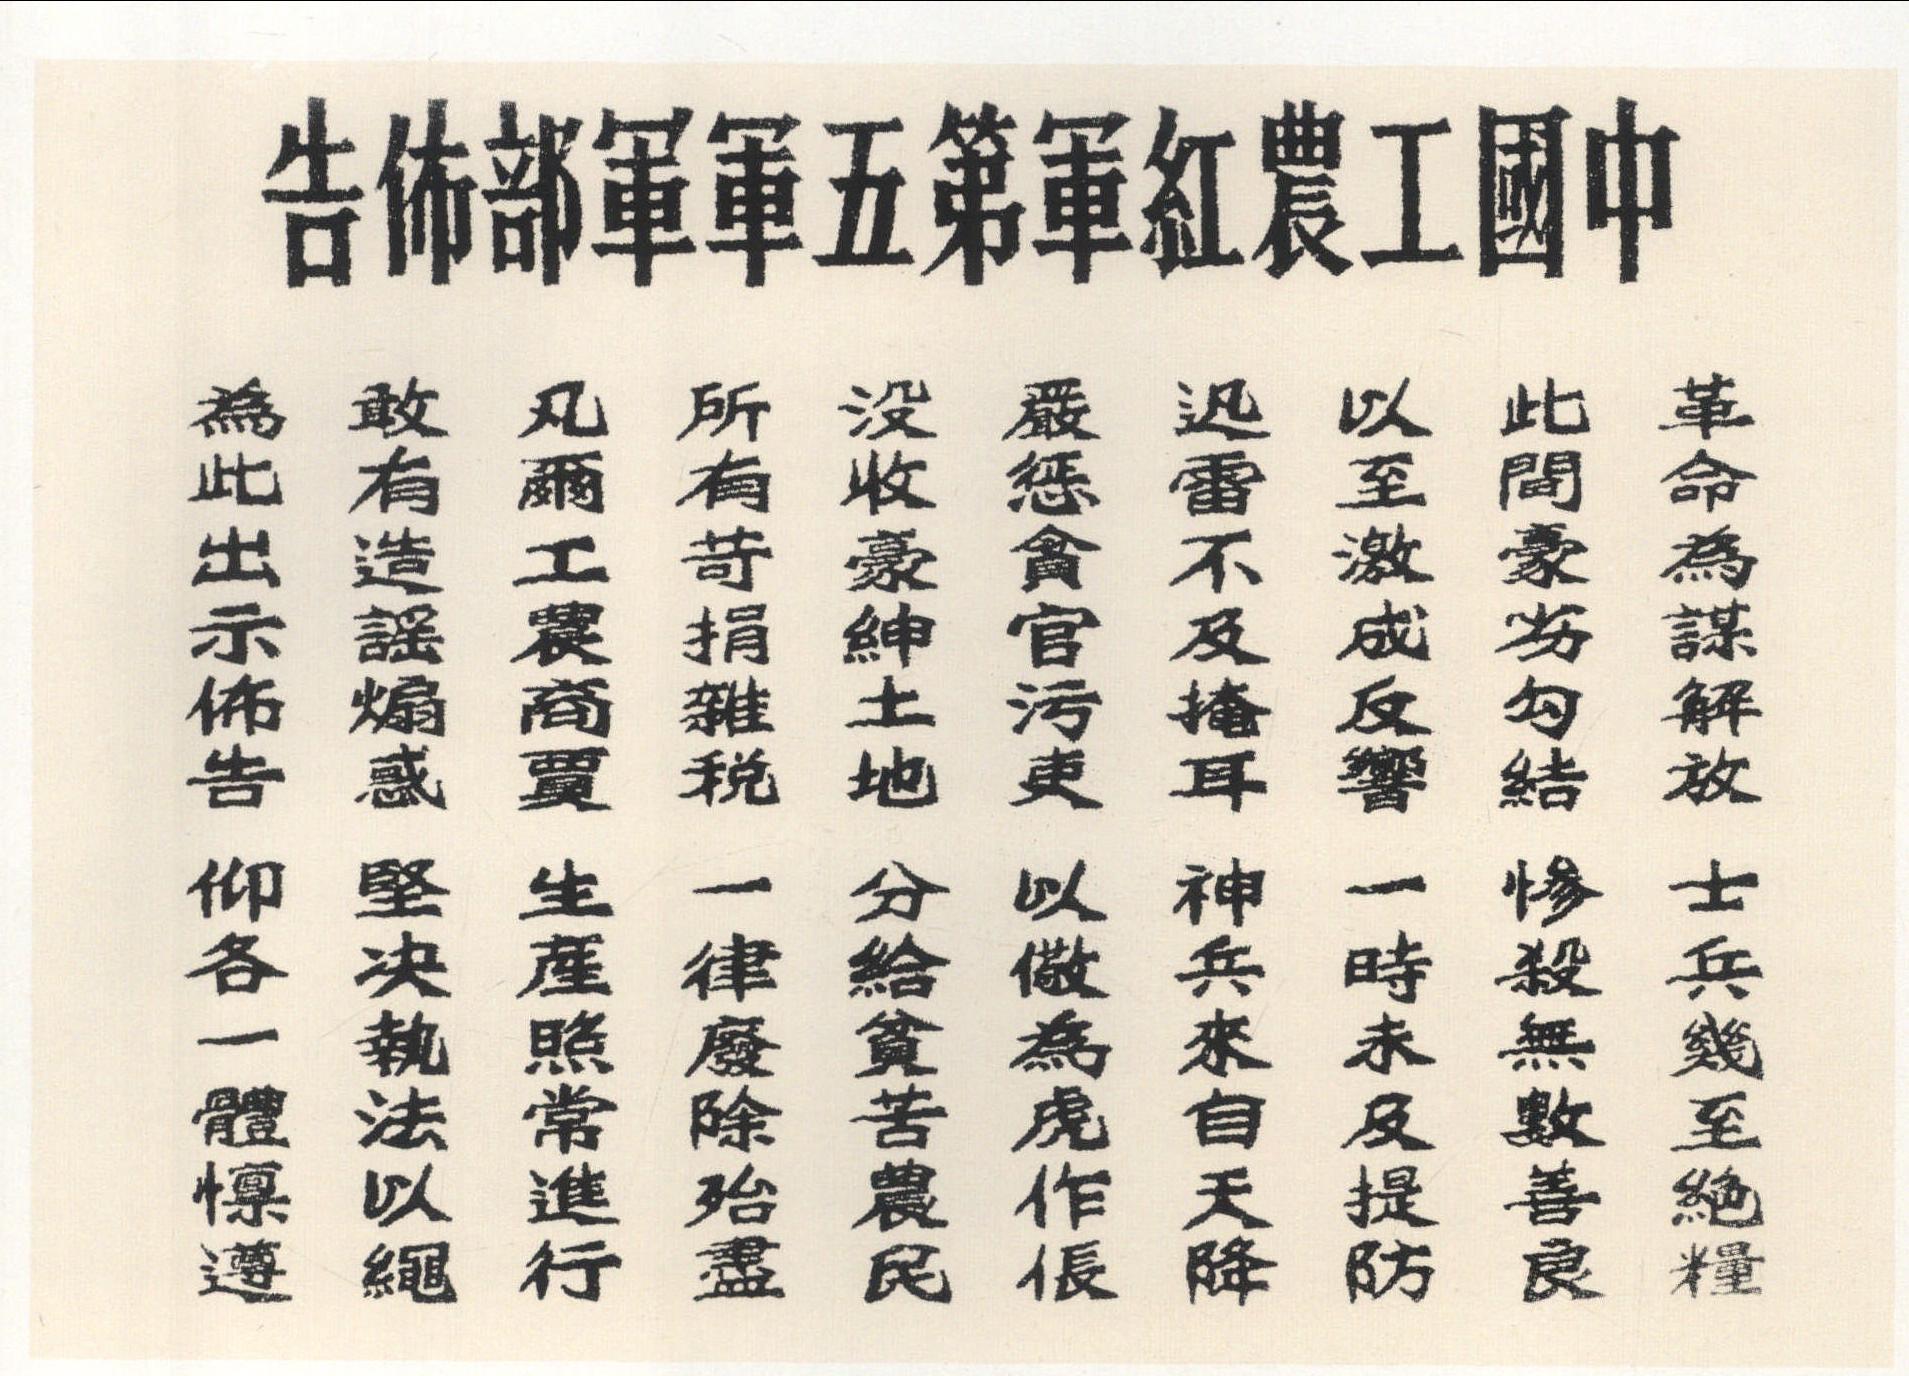 中國工農紅軍第五軍軍部佈告
革命為謀解放　士兵幾至絕糧
此間豪劣勾結　慘殺無數善良
以至激成反響　一時未及提防
迅雷不及掩耳　神兵來自天降
嚴懲貪官污吏　以儆為虎作倀
没收豪紳土地　分給貧苦農民
所有苛捐雜税　一律廢除殆盡
凡爾工農商賈　生產照常進行
敢有造謡煽惑　堅决執法以繩
為此出示佈告　仰各一體懍遵